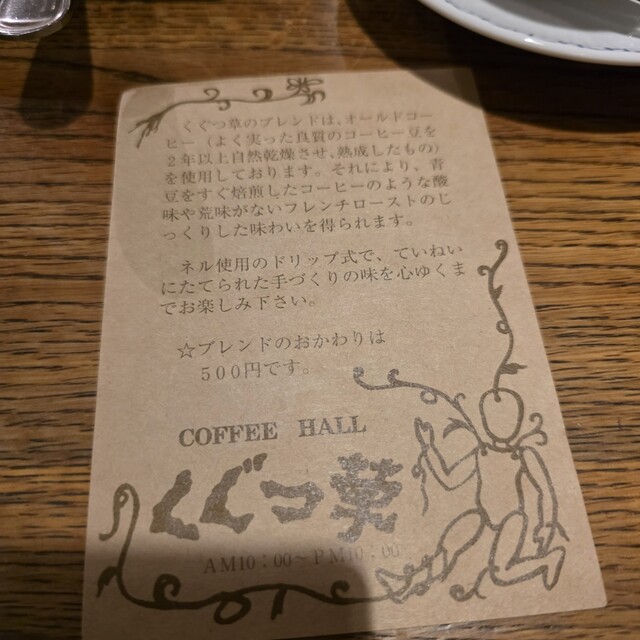 くぐつ草のブレンドは、オールドコー
ヒー（よく実った良質のコーヒー豆を
２年以上自然乾燥させ、熟成したもの）
を使用しております。それにより、若
豆をすぐ焙煎したコーヒーのような酸
味や荒味がないフレンチローストのじ
っくりした味わいを得られます。
ネル使用のドリップ式で、ていねい
にたてられた手づくりの味を心ゆくま
でお楽しみ下さい。
☆ブレンドのおかわりは
５００円です。
COFFEE HALL
くぐつ草
AM10：00～PM10：00